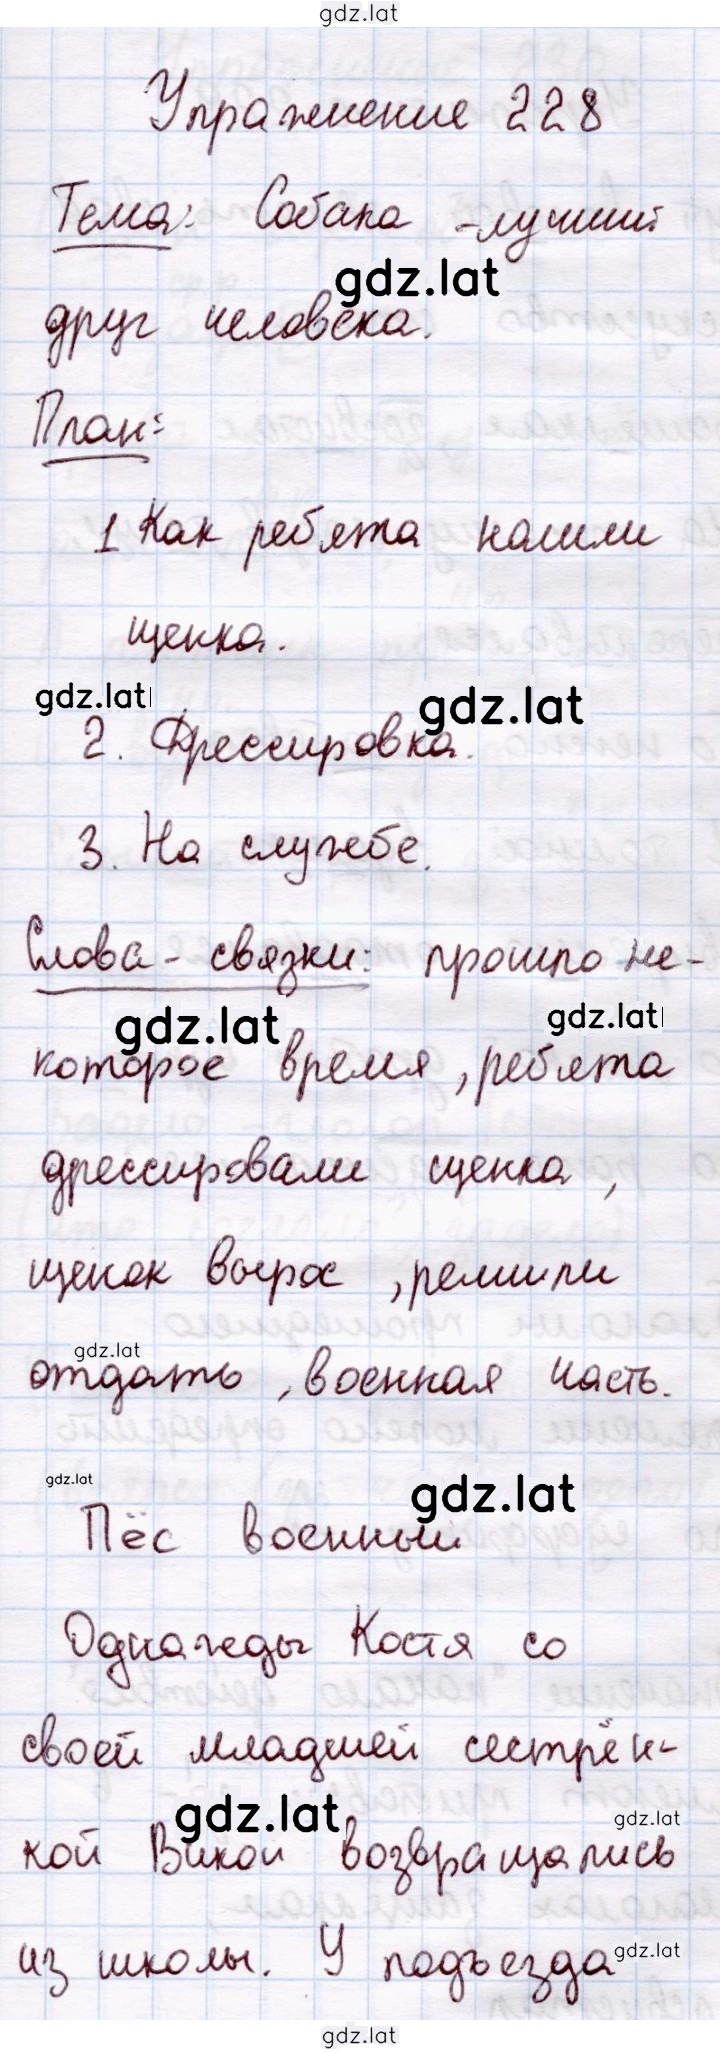 gdz.lat
Упражнение 228
Тема: Собака - лучший
gdz.lat
друг человека.
План:
1 Как ребята нашли
щенка.
gdz.lat
gdz.lat
2. Дрессировка.
3. На службе.
Слова - связки: прошло не-
gdz.lat
gdz.lat
которое время, ребята
дрессировали щенка,
щенок вырос, решили
gdz.lat
отдать, военная часть.
gdz.lat
gdz.lat
Пёс военный
Однажды Костя со
своей младшей сестрён-
gdz.lat
gdz.lat
кой Викой возвращались
из школы. У подъезда
gdz.lat
gdz.lat